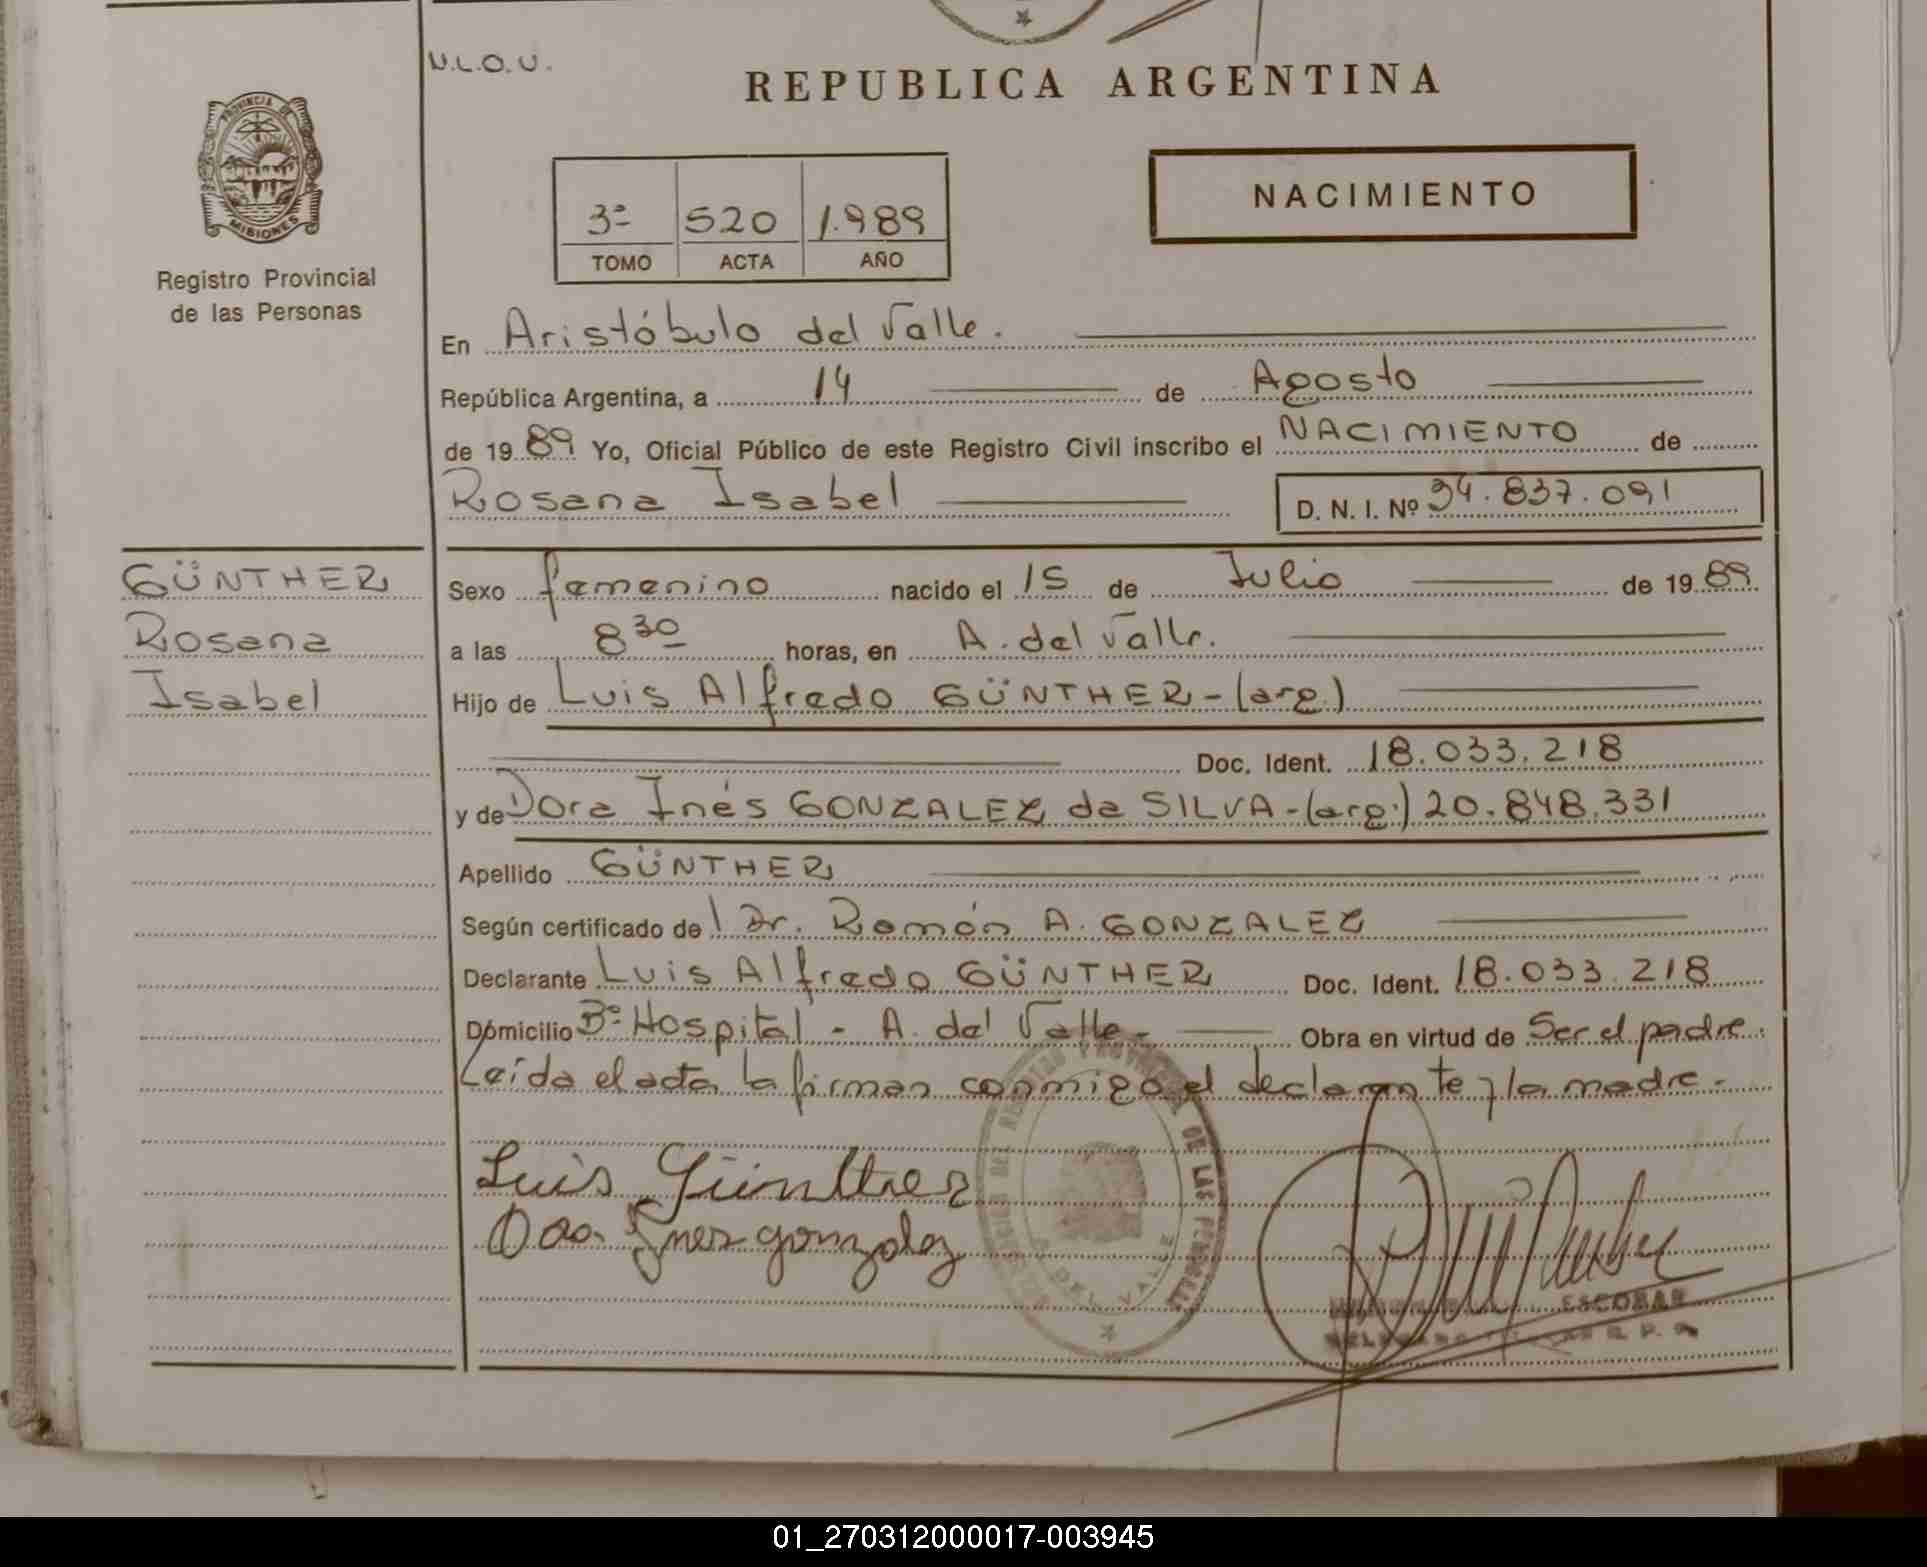 U.L.O.U.
REPUBLICA ARGENTINA
PROVINCIA DE
MISIONES
Registro Provincial
de las Personas
3º 520 1.989
TOMO ACTA AÑO
NACIMIENTO
En Aristóbulo del Valle.
República Argentina, a 14 de Agosto
de 19 89 Yo, Oficial Público de este Registro Civil inscribo el NACIMIENTO de
Rosana Isabel D. N. I. Nº 34.837.091
GÜNTHER
Rosana
Isabel
Sexo femenino nacido el 15 de Julio de 19 89
a las 8 30 horas, en A. del Valle.
Hijo de Luis Alfredo GÜNTHER - (arg.)
Doc. Ident. 18.033.218
y de Dora Inés GONZALEZ da SILVA - (arg.) 20.848.331
Apellido GÜNTHER
Según certificado de l Dr. Ramón A. GONZALEZ
Declarante Luis Alfredo GÜNTHER Doc. Ident. 18.033.218
Domicilio Bº Hospital - A. del Valle - Obra en virtud de Ser el padre
Leída el acta la firman conmigo el declarante y la madre -
Luis Günther
Inez gonzalez
DEL VALLE
DE LAS
ESCOBAR
01_270312000017-003945